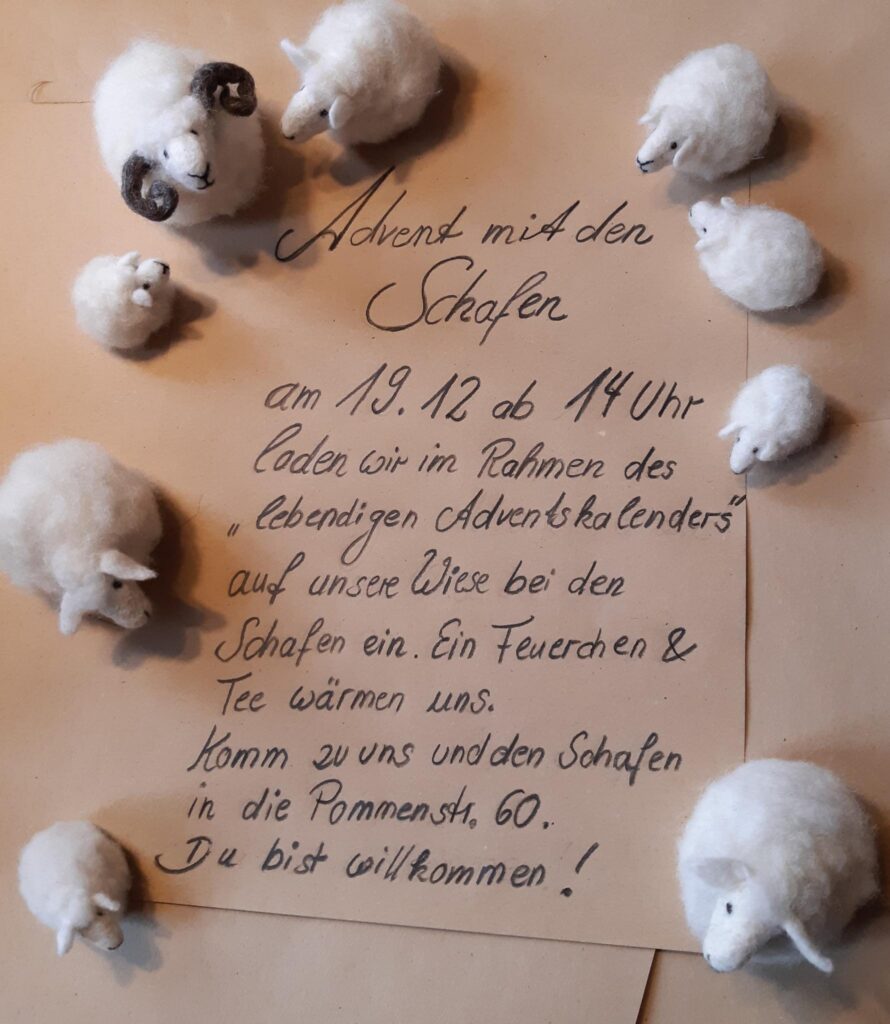 Advent mit den
Schafen
am 19.12 ab 14 Uhr
laden wir im Rahmen des
„lebendigen Adventskalenders“
auf unsere Wiese bei den
Schafen ein. Ein Feuerchen &
Tee wärmen uns.
Komm zu uns und den Schafen
in die Pommenstr. 60.
Du bist willkommen!